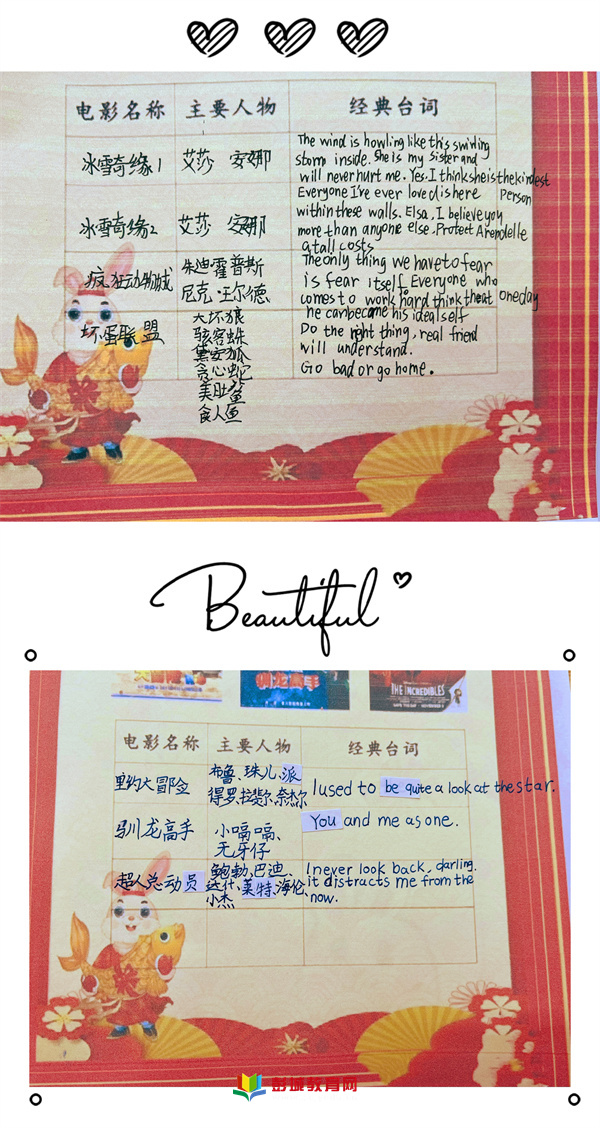 电影名称 主要人物 经典台词
冰雪奇缘1 艾莎 安娜
The wind is howling like this swirling
storm inside. She is my sister and
will never hurt me. Yes. I think she is the kindest
Person
冰雪奇缘2 艾莎 安娜
Everyone I've ever loved is here
within these walls. Elsa, I believe you
more than anyone else. Protect Arendelle
at all costs
疯狂动物城
朱迪霍普斯
尼克·王尔德
The only thing we have to fear
is fear itself. Everyone who
comes to work hard think that one day
he can become his ideal self
坏蛋联盟
大坏狼
骇客蛛
黛安狐
贪心蛇
美肚鲨
食人鱼
Do the right thing, real friend
will understand.
Go bad or go home.
Beautiful
驯龙高手
THE INCREDIBLES
电影名称 主要人物 经典台词
里约大冒险
布鲁、珠儿、派
得罗、拉斐尔、奈杰尔
I used to be quite a look at the star.
驯龙高手
小嗝嗝、
无牙仔
You and me as one.
超人总动员
鲍勃、巴迪、
达什、莱特、海伦、
小杰
I never look back, darling.
it distracts me from the
now.
彭城教育网